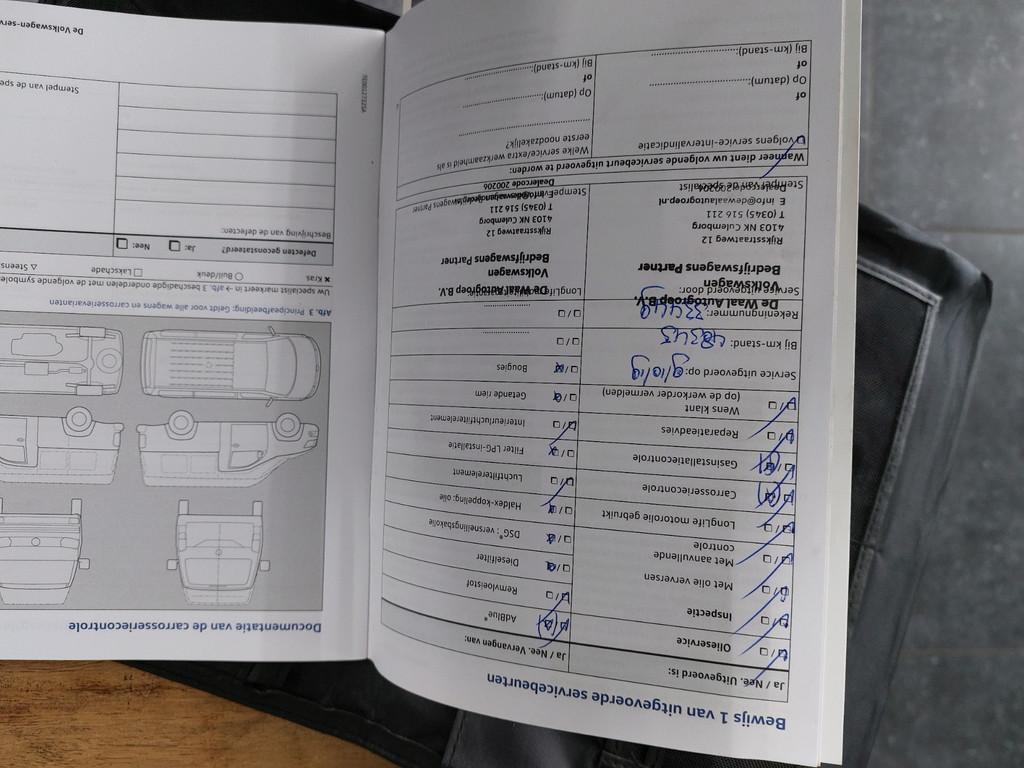 Bewijs 1 van uitgevoerde servicebeurten
Ja / Nee. Uitgevoerd is:
Olieservice
Inspectie
Met olie verversen
Met aanvullende
controle
LongLife motorolie gebruikt
Carrosseriecontrole
Gasinstallatiecontrole
Reparatieadvies
Wens klant
(op de werkorder vermelden)
Service uitgevoerd op: 9/10/19
Bij km-stand: 48343
Rekeningnummer:
Service uitgevoerd door:
De Waal Autogroep B.V.
Volkswagen
Bedrijfswagens Partner
Rijksstraatweg 12
4103 NK Culemborg
T (0345) 516 211
E info@dewaalautogroep.nl
Stempel van de specialist
Ja / Nee. Vervangen van:
AdBlue®
Remvloeistof
Dieselfilter
DSG®; versnellingsbakolie
Haldex-koppeling: olie
Luchtfilterelement
Filter LPG-installatie
Interieurluchtfilterelement
Getande riem
Bougies
De Waal Autogroep B.V.
Volkswagen
Bedrijfswagen Partner
Rijksstraatweg 12
4103 NK Culemborg
T (0345) 516 211
Dealercode 200206
Wanneer dient uw volgende servicebeurt uitgevoerd te worden:
volgens service-intervalindicatie
of
Op (datum):
of
Bij (km-stand):
Welke service/extra werkzaamheid is als
eerste noodzakelijk?
Op (datum):
of
Bij (km-stand):
Documentatie van de carrosseriecontrole
Afb. 3 Principeafbeelding: Geldt voor alle wagens en carrosserievarianten
Uw specialist markeert in → afb. 3 beschadigde onderdelen met de volgende symbole
× Kras
○ Buil/deuk
□ Lakschade
△ Steens
Defecten geconstateerd? Ja: Nee:
Beschrijving van de defecten:
Stempel van de spe
De Volkswagen-serv